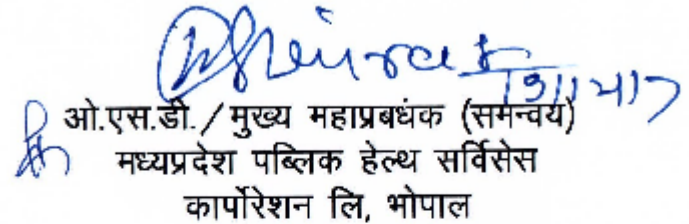 ओ.एस.डी./मुख्य महाप्रबधंक (समन्वय)
मध्यप्रदेश पब्लिक हेल्थ सर्विसेस
कार्पोरेशन लि, भोपाल